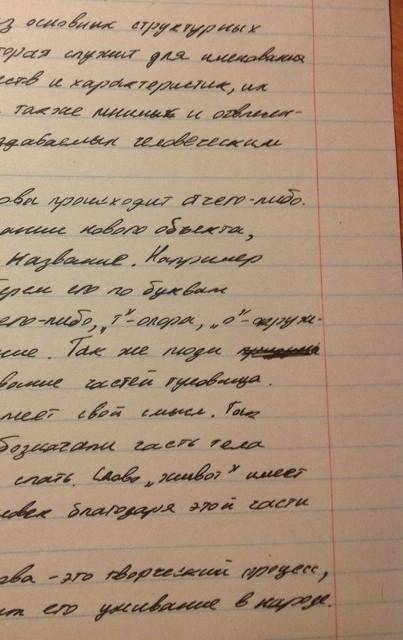 из основных структурных
оторая служит для именования
ств и характеристик, их
также мнимых и отвлечён-
здаваемых человеческим
ова происходит от чего-либо.
ании нового объекта,
название. Например
берем его по буквам
его-либо, „т"-опора, „о"-окруже-
ние. Так же люди
вание частей туловища.
меет свой смысл. Так
бозначали часть тела
спать. Слово „живот" имеет
ловек благодаря этой части
ова - это творческий процесс,
ит его уживание в народе.